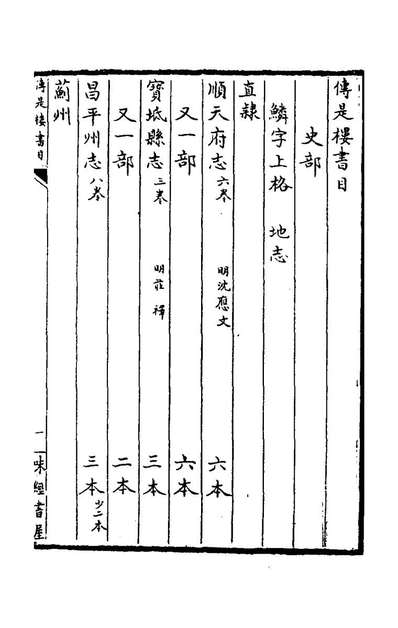 傳是樓書目
史部
鱗字上格 地志
直隸
順天府志六卷 明沈應文 六本
又一部 六本
寶坻縣志三卷 明莊禪 三本
又一部 二本
昌平州志八卷 三本少二本
薊州
傳是樓書目 一 味經書屋